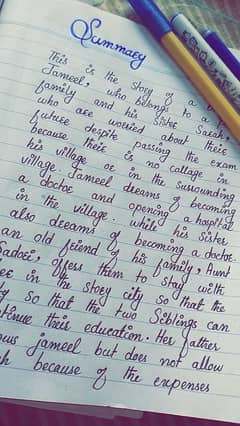 Summary
This is the story of a
Jameel, who belongs to a
family and his Sister Sarah,
who are worried about their
future despite passing the exam
because their is no callage in
his village or in the surrounding
village. Jameel dreams of becoming
a doctor and opening a hospital
in the village. while his sister
also dreams of becoming a doctor.
an old friend of his family, Aunt
offers them to stay with
in the story city so that the
so that the two Siblings can
their education. Her father
jameel but does not allow
because of the expenses